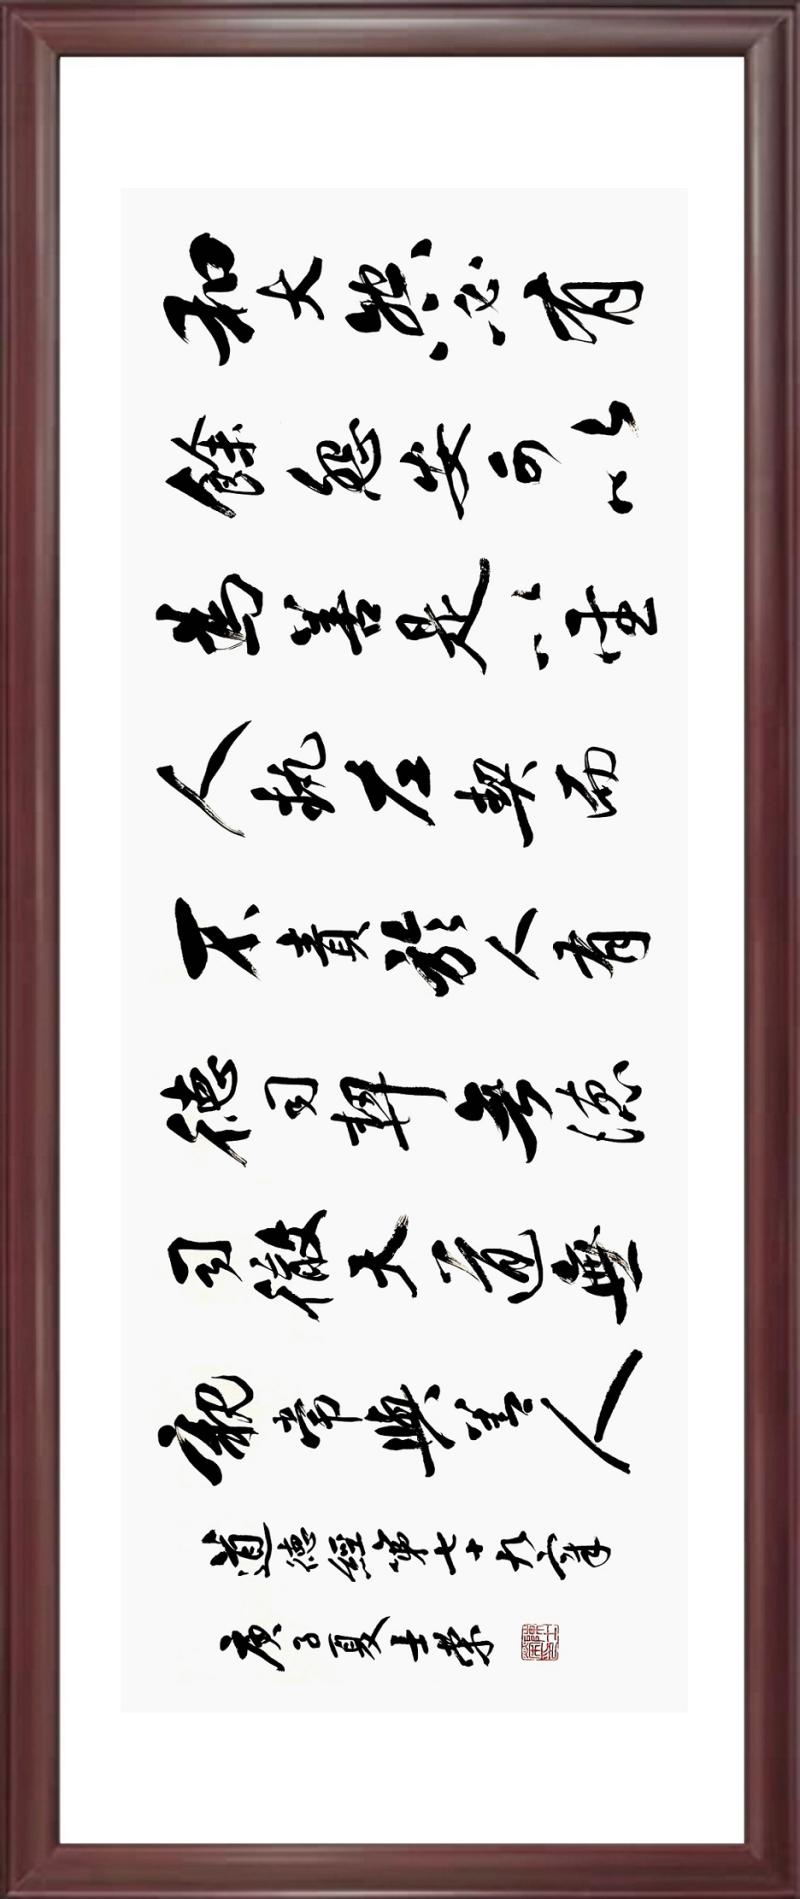 和大怨必有
餘怨安可以
為善是以聖
人執左契而
不責於人有
德司契無德
司徹天道無
親常與善人
道德經第七十九章
庚子夏